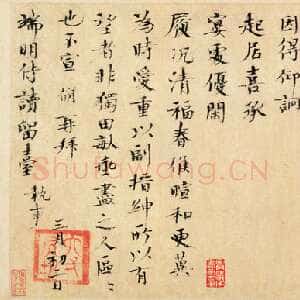 因得仰詗
起居喜承
宴處優閑
履況清福春候暄和更冀
為時愛重以副搢紳所以有
望者非獨田畝垂盡之人區區
也不宣 再拜
端明侍讀留臺 執事
三月初二日
Shufawang.CN